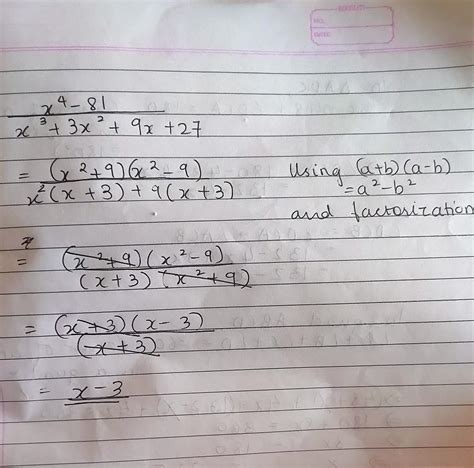 x⁴ - 81
x³ + 3x² + 9x + 27
= (x² + 9)(x² - 9)
x²(x + 3) + 9(x + 3)
Using (a+b)(a-b)
= a² - b²
and factorization
= (x² + 9)(x² - 9)
(x + 3)(x² + 9)
= (x + 3)(x - 3)
(x + 3)
= x - 3